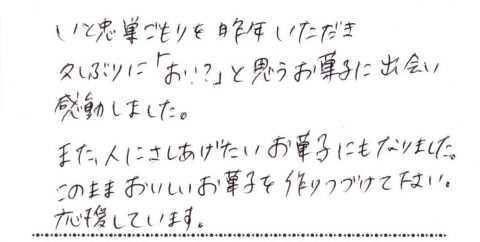 いと忠巣ごもりを昨年いただき
久しぶりに「おいい?」と思うお菓子に出会い
感動しました。
また、人にさしあげたいお菓子にもなりました。
このままおいしいお菓子を作りつづけて下さい。
応援しています。